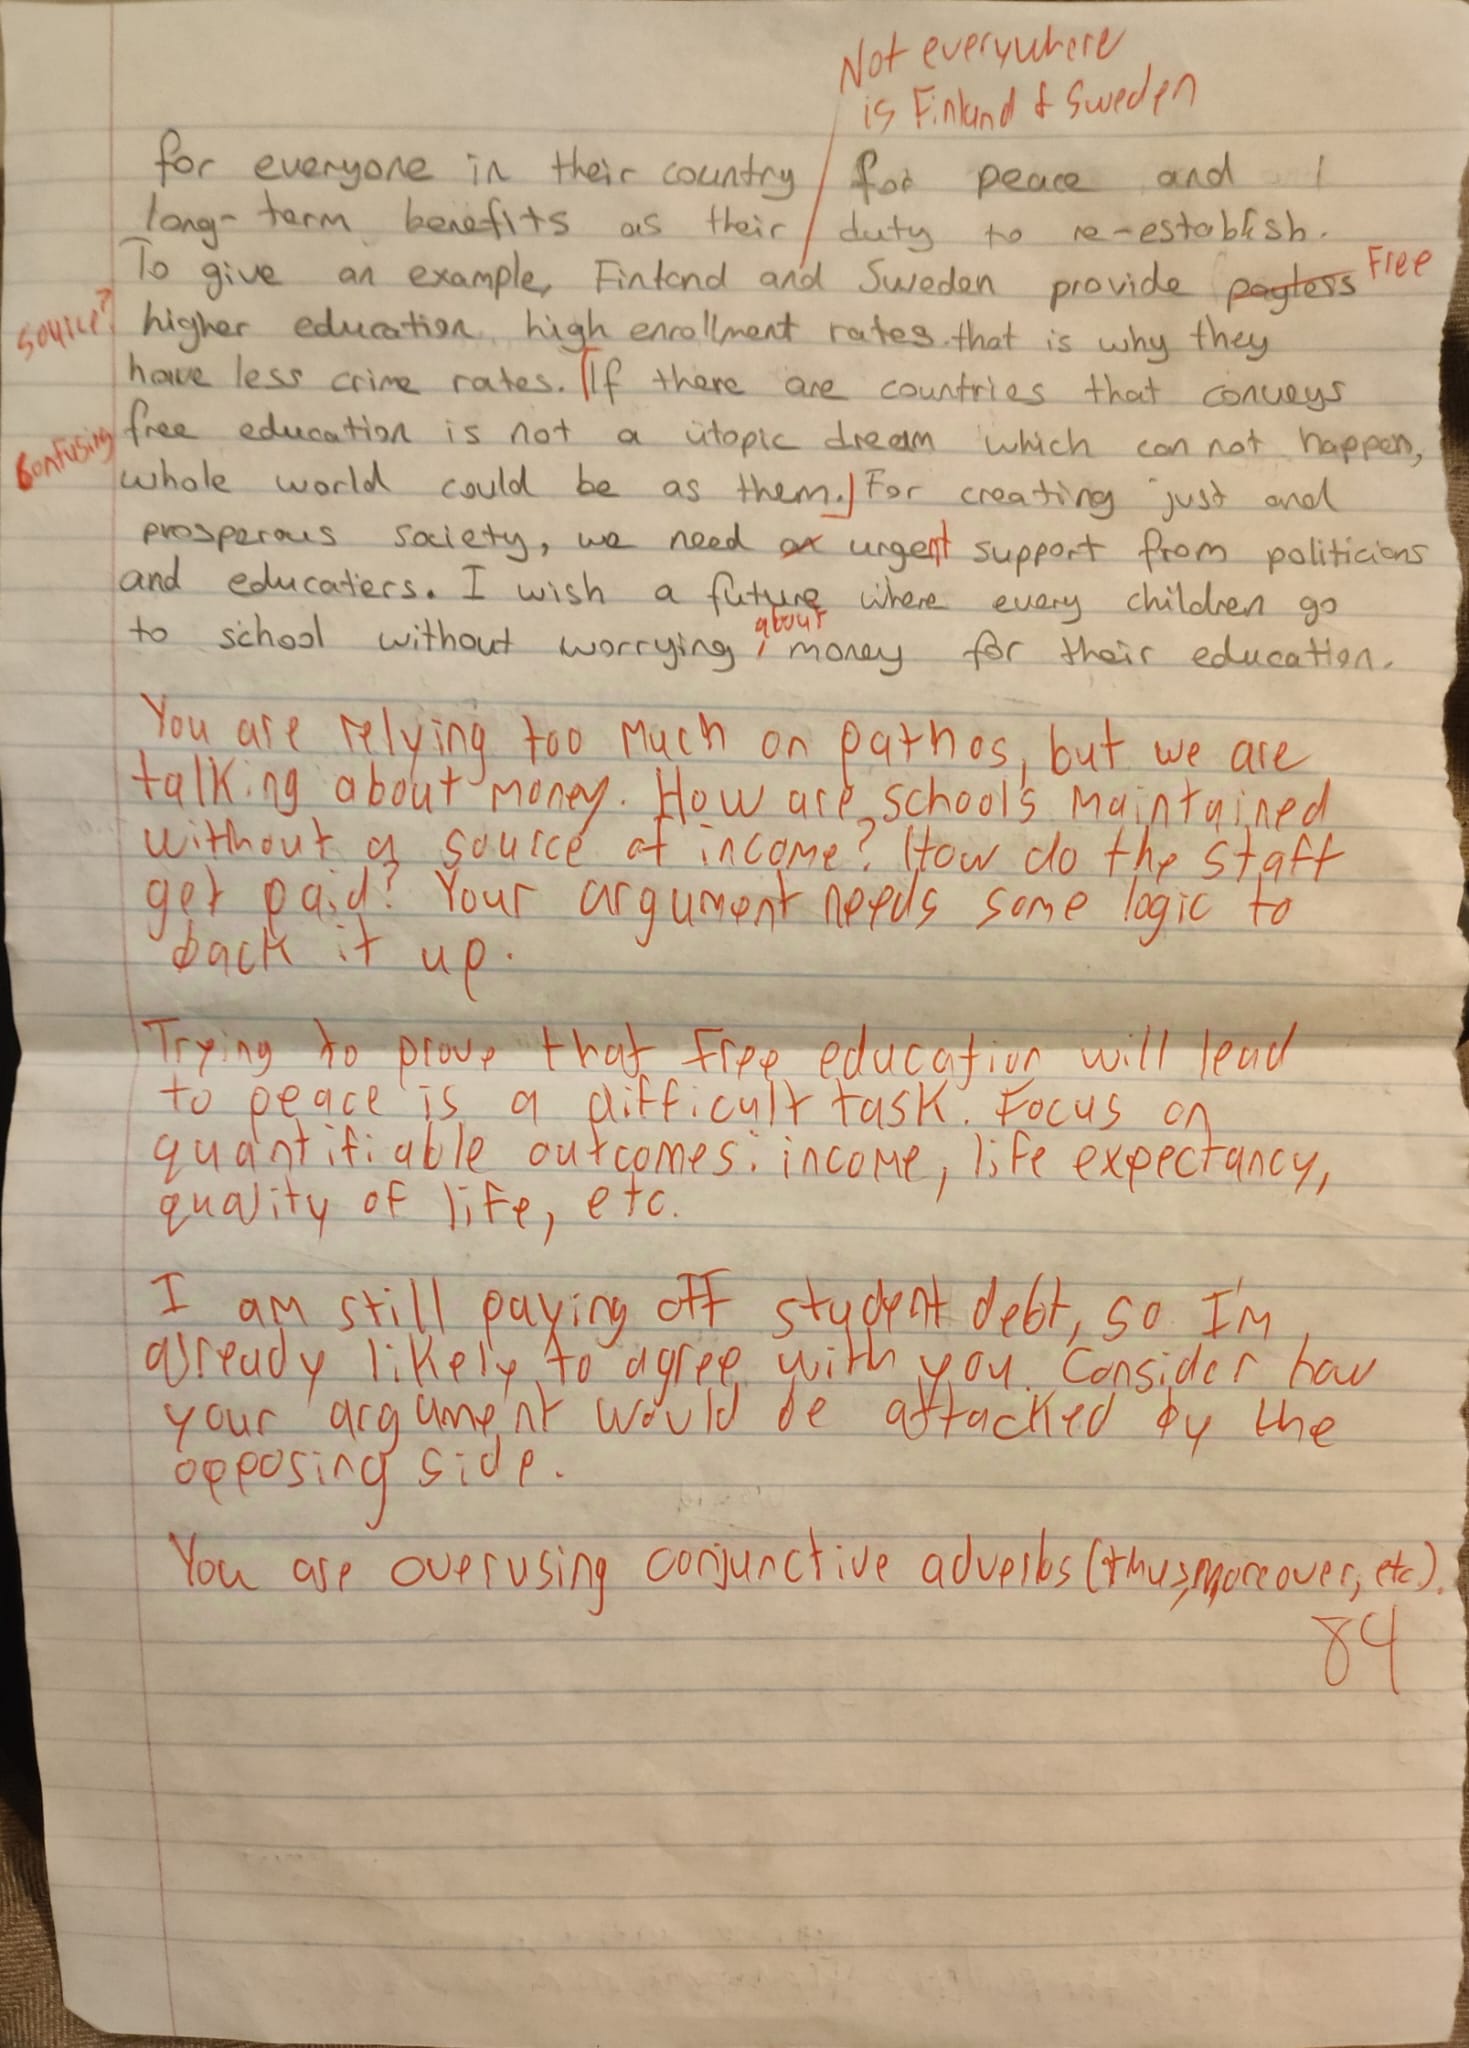 Not everywhere
is Finland & Sweden
for everyone in their country for peace and
long-term benefits as their duty to re-establish.
To give an example, Finland and Sweden provide payless Free
source?
higher education, high enrollment rates that is why they
have less crime rates. If there are countries that conveys
Confusing
free education is not a utopic dream which can not happen,
whole world could be as them. For creating just and
prosperous society, we need an urgent support from politicians
and educaters. I wish a future where every children go
about
to school without worrying money for their education.
You are relying too much on pathos, but we are
talking about money. How are schools maintained
without a source of income? How do the staff
get paid? Your argument needs some logic to
back it up.
Trying to prove that free education will lead
to peace is a difficult task. Focus on
quantifiable outcomes: income, life expectancy,
quality of life, etc.
I am still paying off student debt, so I'm
already likely to agree with you. Consider how
your argument would be attacked by the
opposing side.
You are overusing conjunctive adverbs (thus, moreover, etc).
84